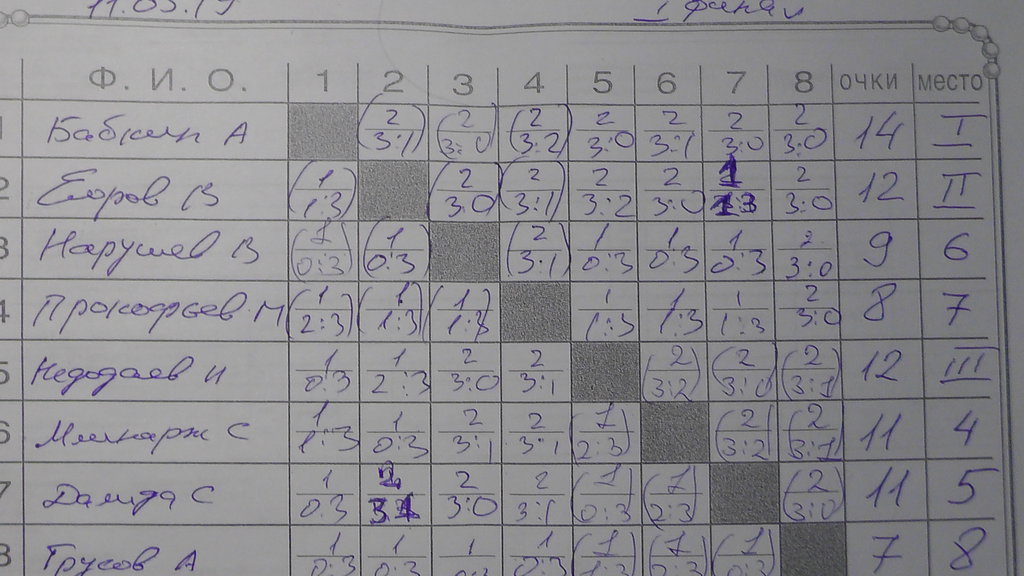 11.05.19 I финал
Ф. И. О. 1 2 3 4 5 6 7 8 очки место
1 Бабкин А (2 3:1) (2 3:0) (2 3:2) 2 3:0 2 3:1 2 3:0 2 3:0 14 I
2 Егоров В (1 1:3) (2 3:0) (2 3:1) 2 3:2 2 3:0 1 1:3 2 3:0 12 II
3 Нарушев В (1 0:3) (1 0:3) (2 3:1) 1 0:3 1 0:3 1 0:3 2 3:0 9 6
4 Прокофьев М (1 2:3) (1 1:3) (1 1:3) 1 1:3 1 1:3 1 1:3 2 3:0 8 7
5 Недодаев И 1 0:3 1 2:3 2 3:0 2 3:1 (2 3:2) (2 3:0) (2 3:1) 12 III
6 Млинарж С 1 1:3 1 0:3 2 3:1 2 3:1 (1 2:3) (2 3:2) (2 3:1) 11 4
7 Далида С 1 0:3 2 3:1 2 3:0 2 3:1 (1 0:3) (1 2:3) (2 3:0) 11 5
8 Трусов А 1 0:3 1 0:3 1 0:3 1 0:3 (1 1:3) (1 1:3) (1 0:3) 7 8